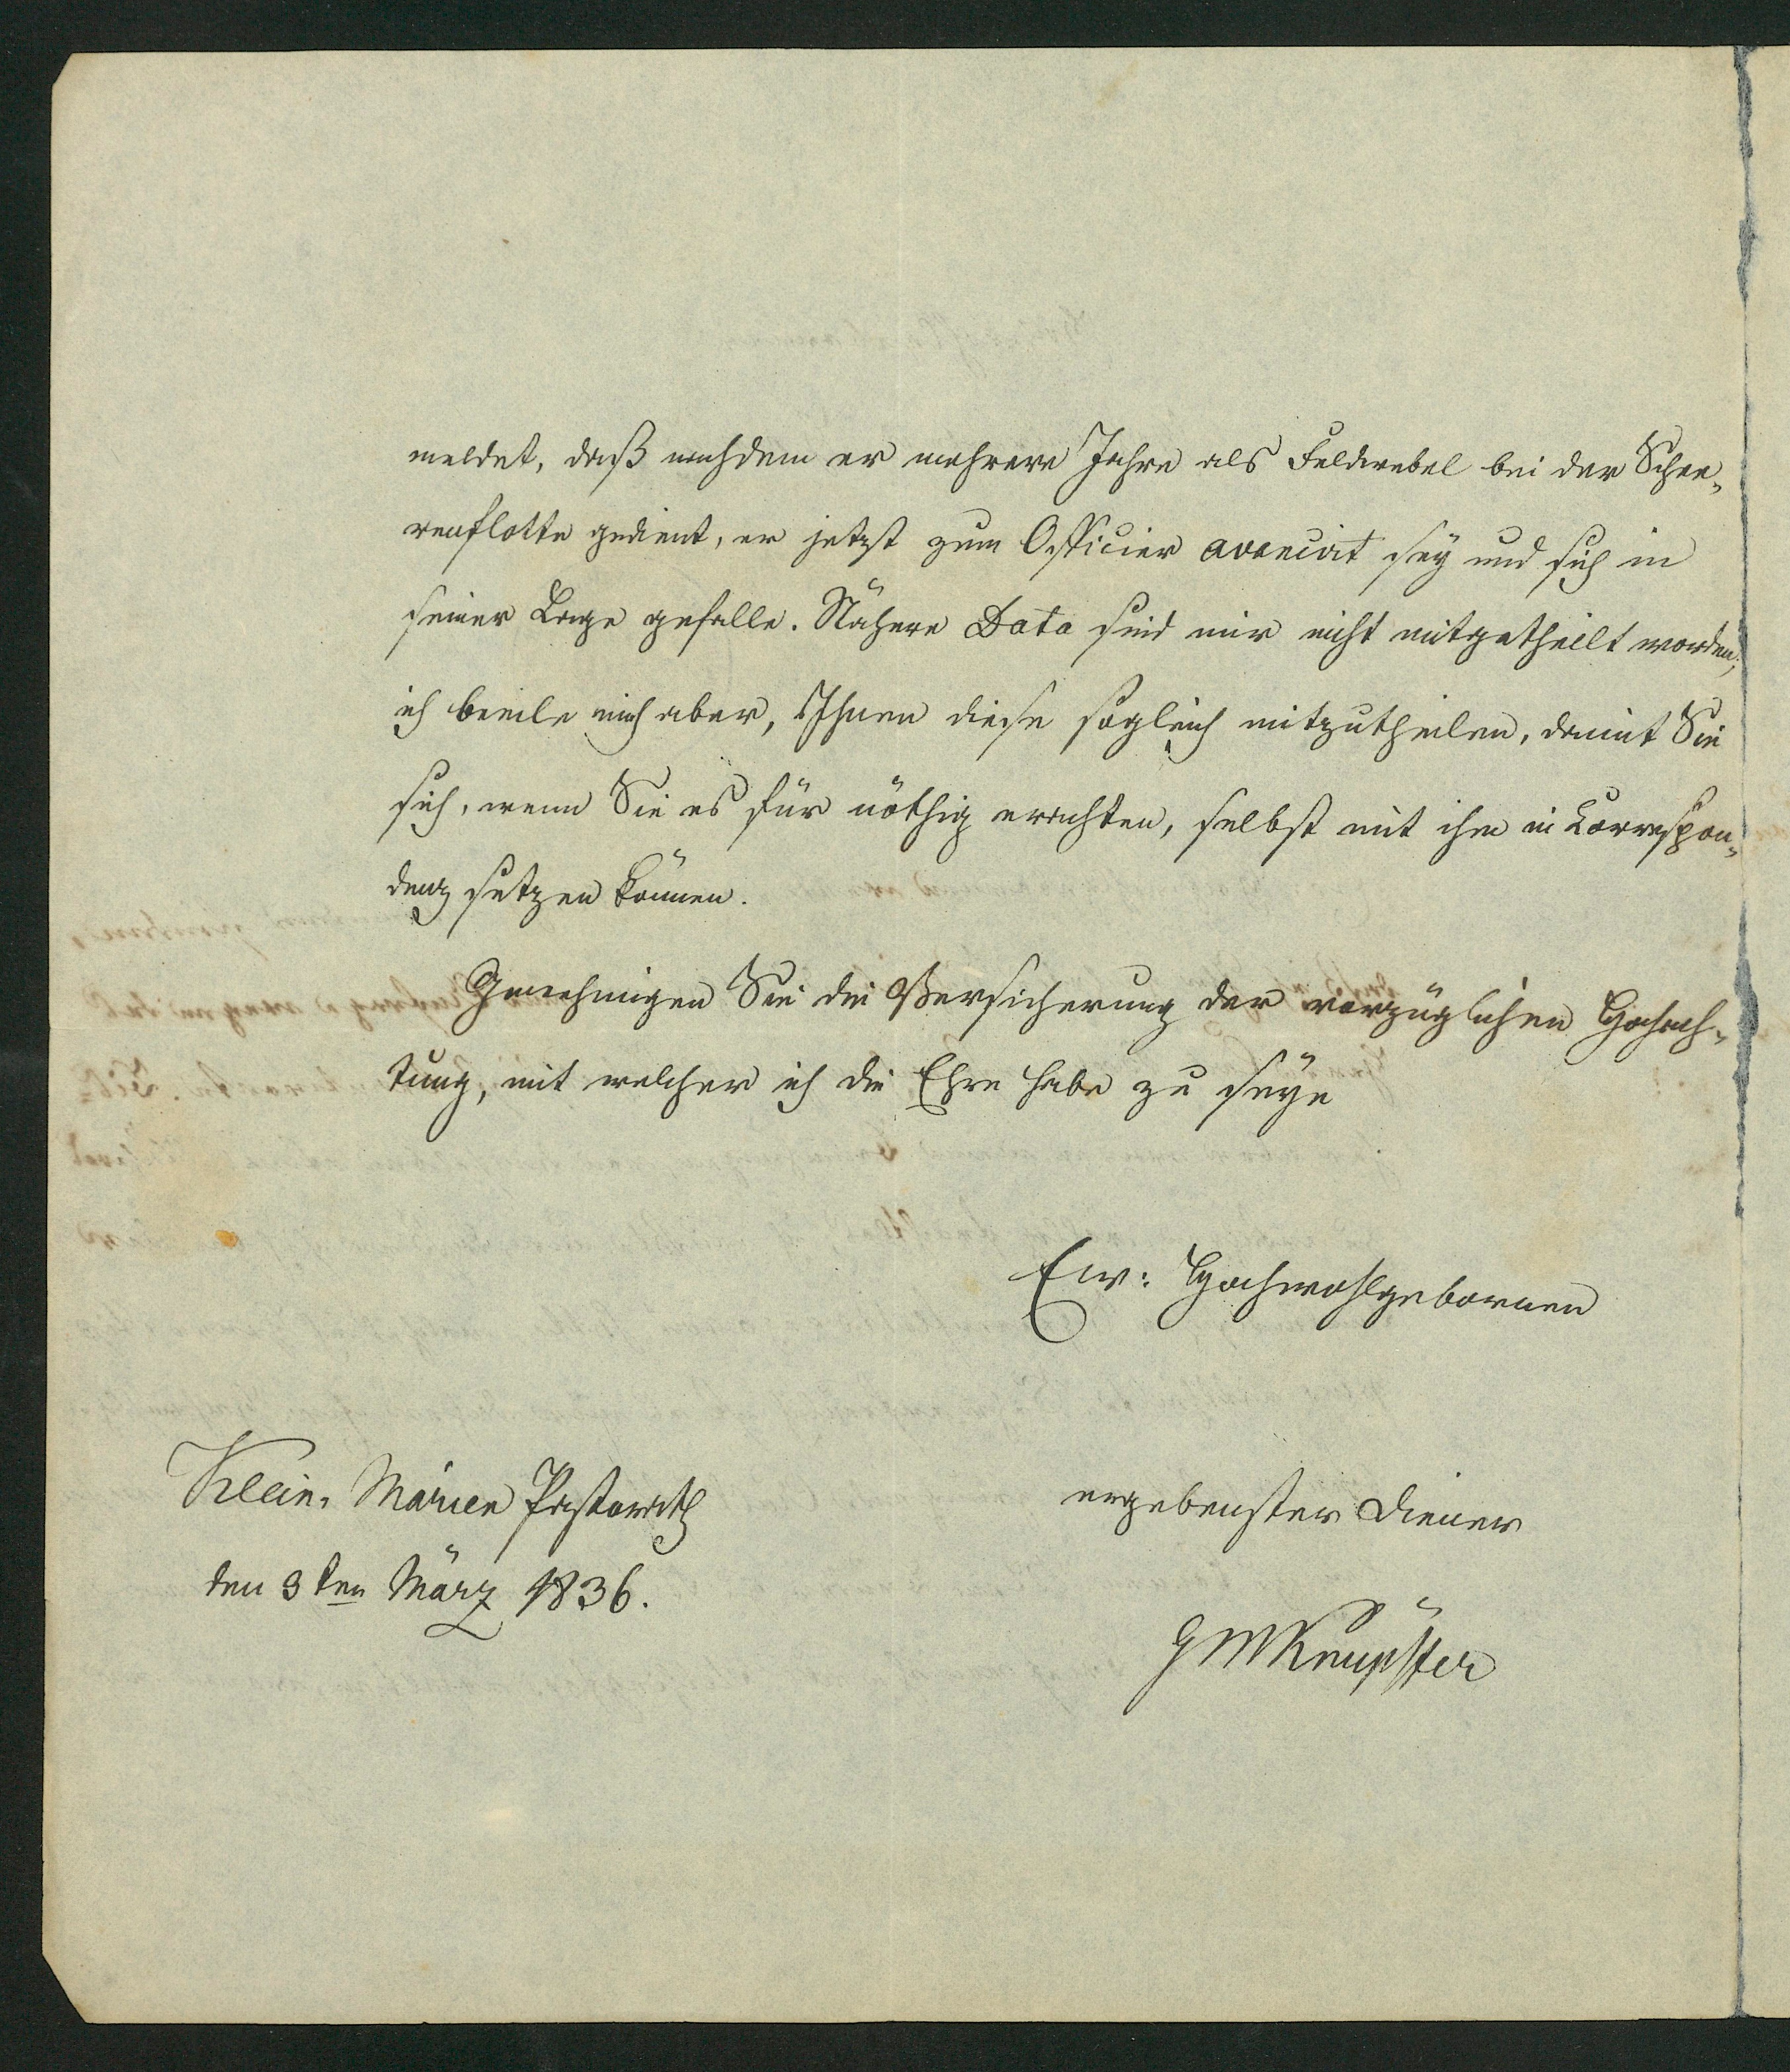 meldet, daß nachdem er mehrere Jahre als Feldwebel bei der Schee-
renflotte gedient, er jetzt zum Officier avancirt sey und sich in
seiner Lage gefalle. Nähere Data sind mir nicht mitgetheilt worden;
ich beeile mich aber, Ihnen diese sogleich mitzutheilen, damit Sie
sich, wenn Sie es für nöthig erachten, selbst mit ihm in Correspon-
denz setzen können.
Genehmigen Sie die Versicherung der vorzüglichen Hochach-
tung, mit welcher ich die Ehre habe zu seyn
Ew: Hochwohlgebornen
Klein-Marien Pastorath
ergebenster Diener
den 3ten März 1836.
G M Knüpffer